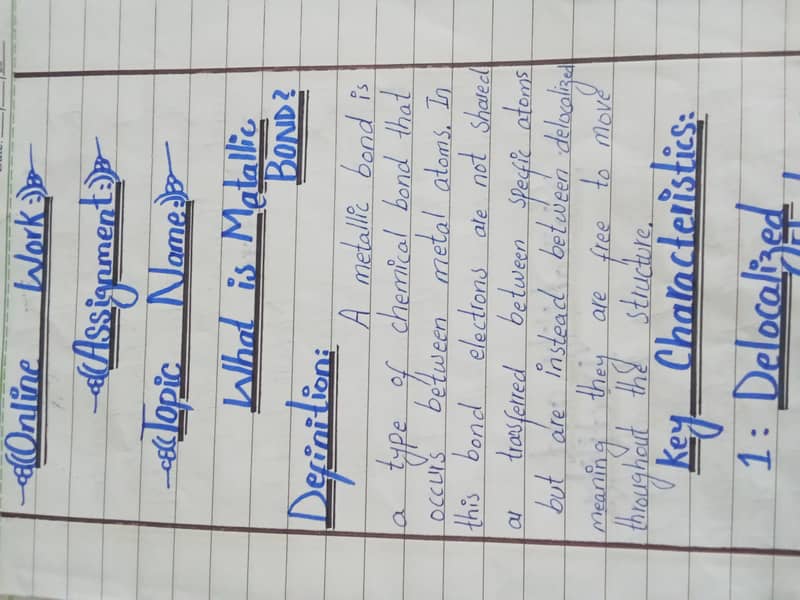 Online Work:
Assignment:
Topic Name:
What is Matallic
BOND?
Definition:
A metallic bond is
a type of chemical bond that
occurs between metal atoms. In
this bond elections are not shared
or trasferred between specific atoms
but are instead between delocalized
meaning they are free to move
throughout the structure.
Key Characteristics:
1: Delocalized